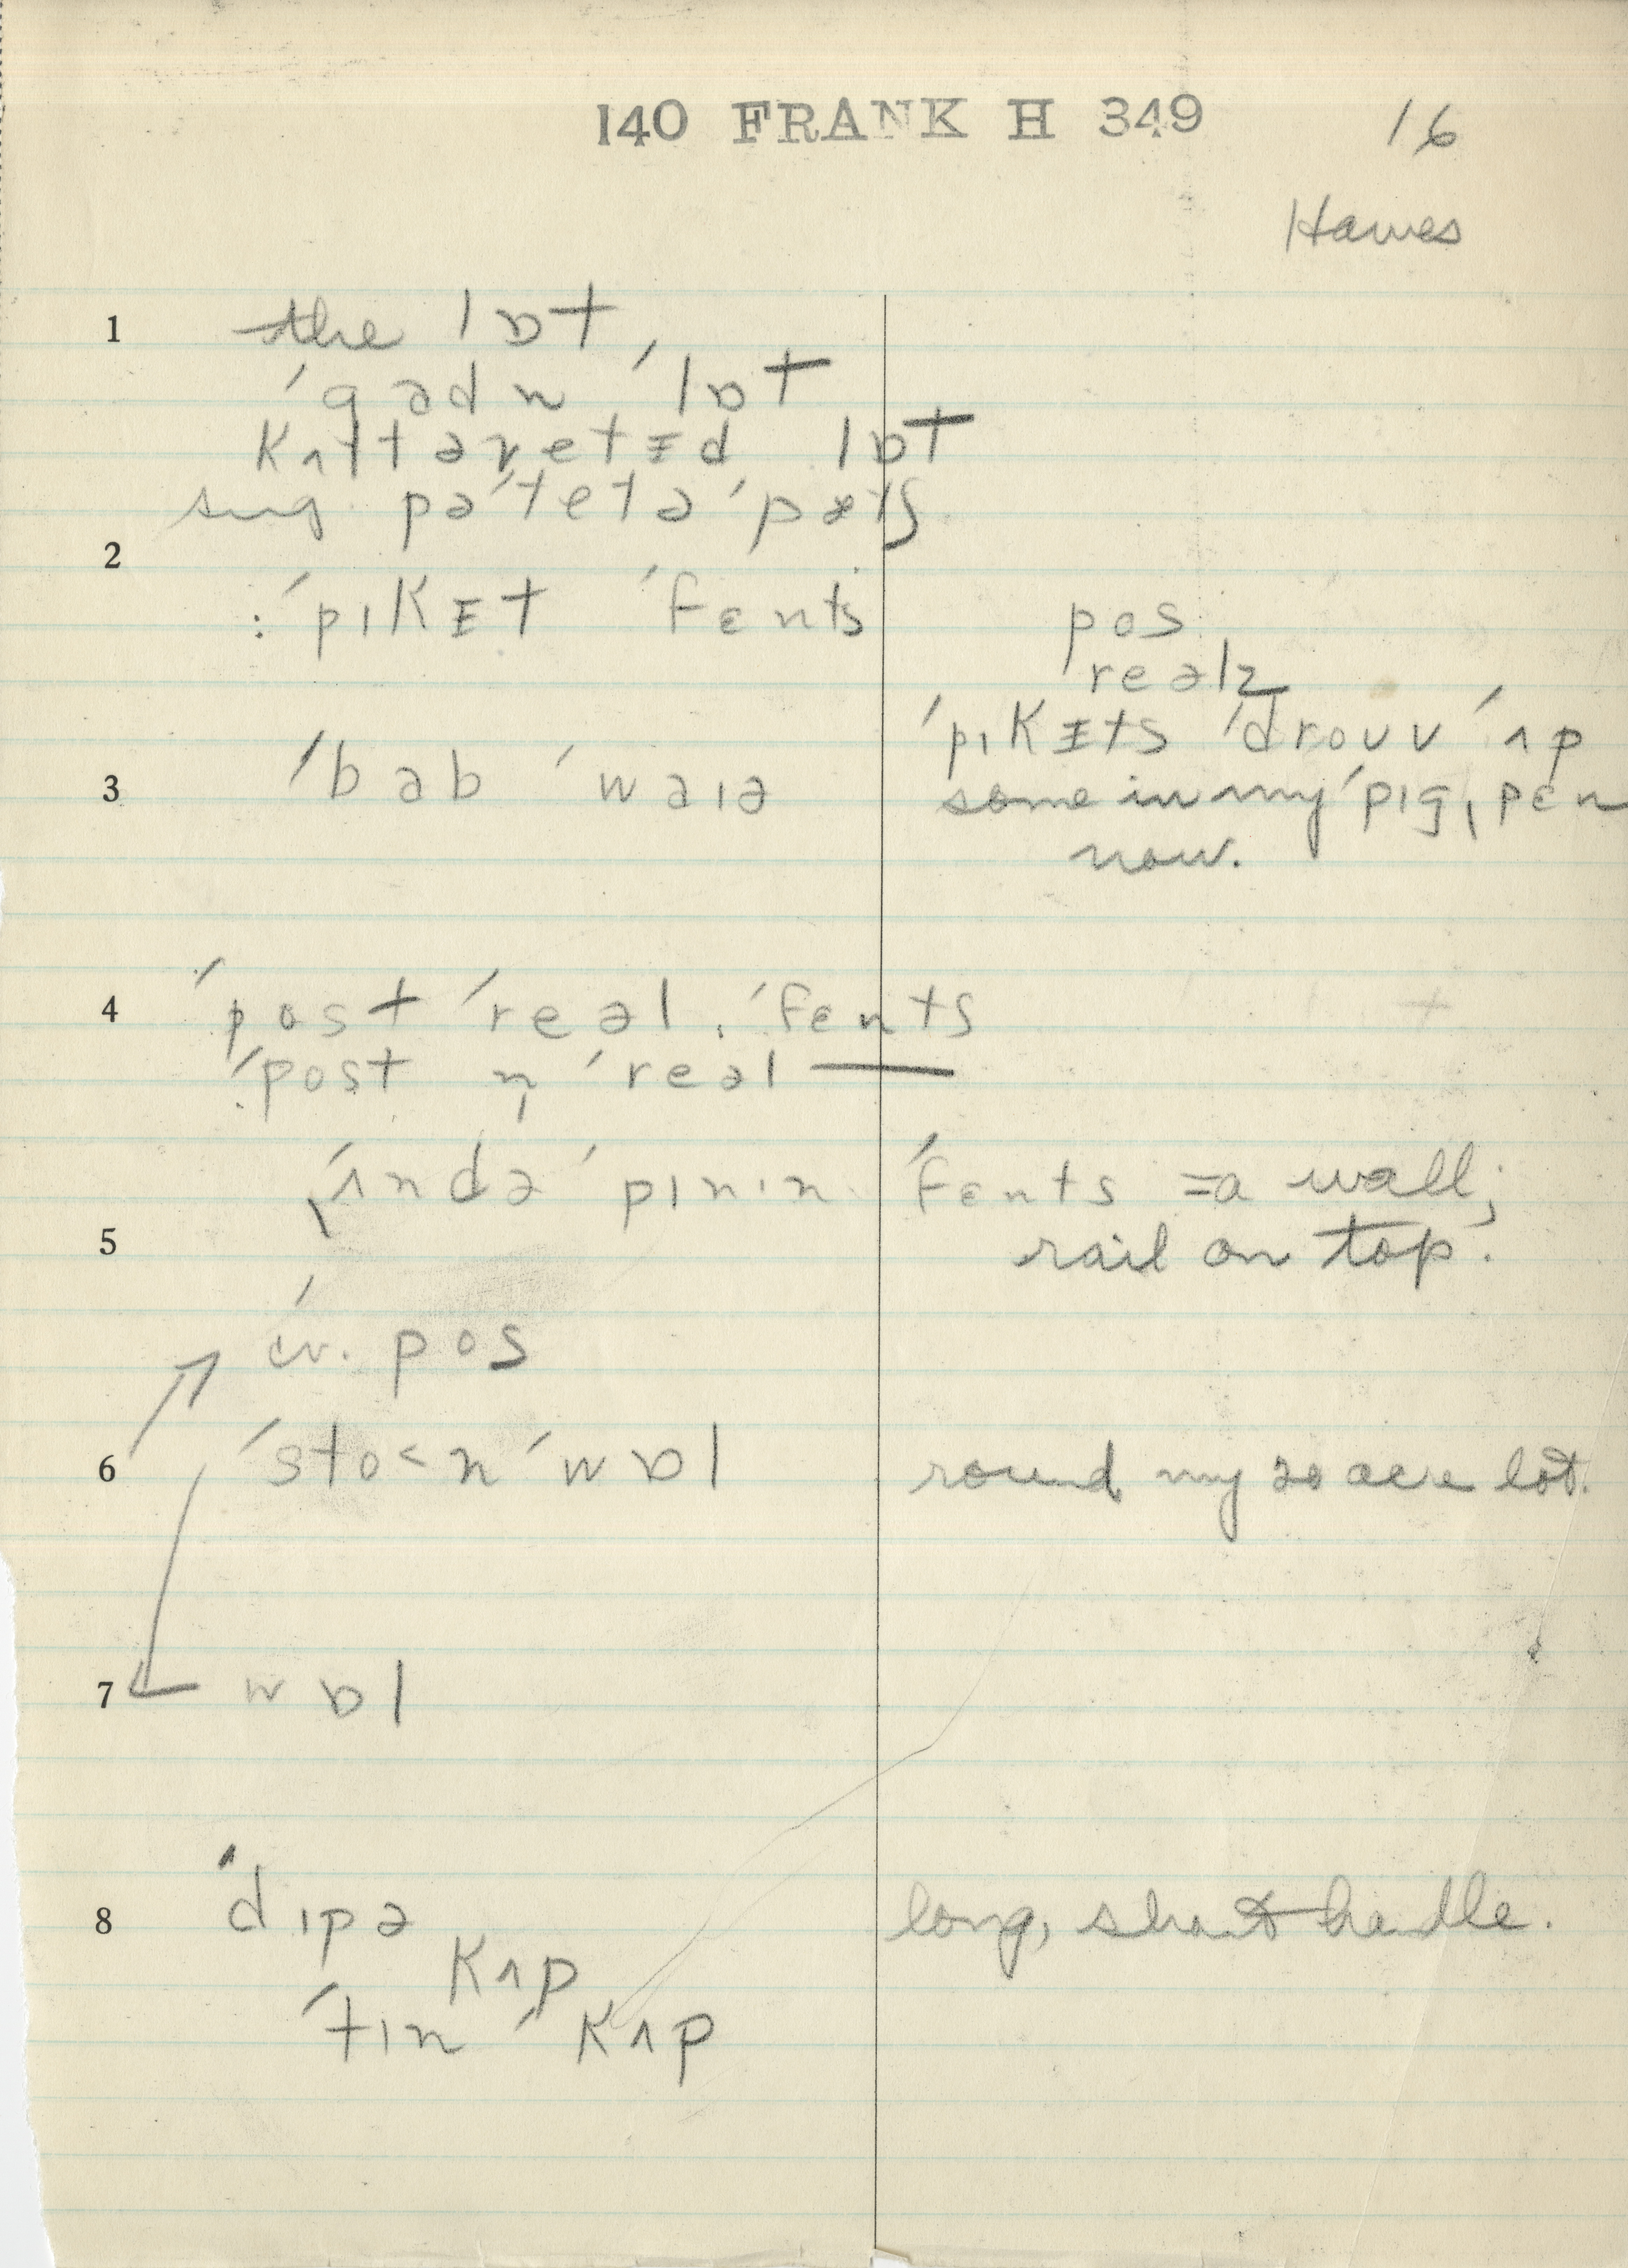 140 FRANK H 349
16
Hawes
1 the lɒt
ˈgadn ˈlɒt
kʌltəvetɪd lɒt
sug. pəˈtetə ˈpætʃ
2
: ˈpɪkᵻt ˈfɛnts
pos
reəlz
ˈpɪkᵻts ˈdrouv ˈʌp
3 ˈbab ˈwaɪə
some in my ˈpɪgˌpɛn
now.
4 ˈpost ˈreəl ˌfɛnts
ˈpost n̩ ˈreəl —
ˌʌndəˈpɪnɪn ˈfɛnts = a wall;
5 rail on top.
cv. pos
6 ˈsto˂n ˈwɒl round my 20 acre lot.
7 wɒl
8 ˈdɪpə long, short handle.
kʌp
ˈtɪn ˈkʌp